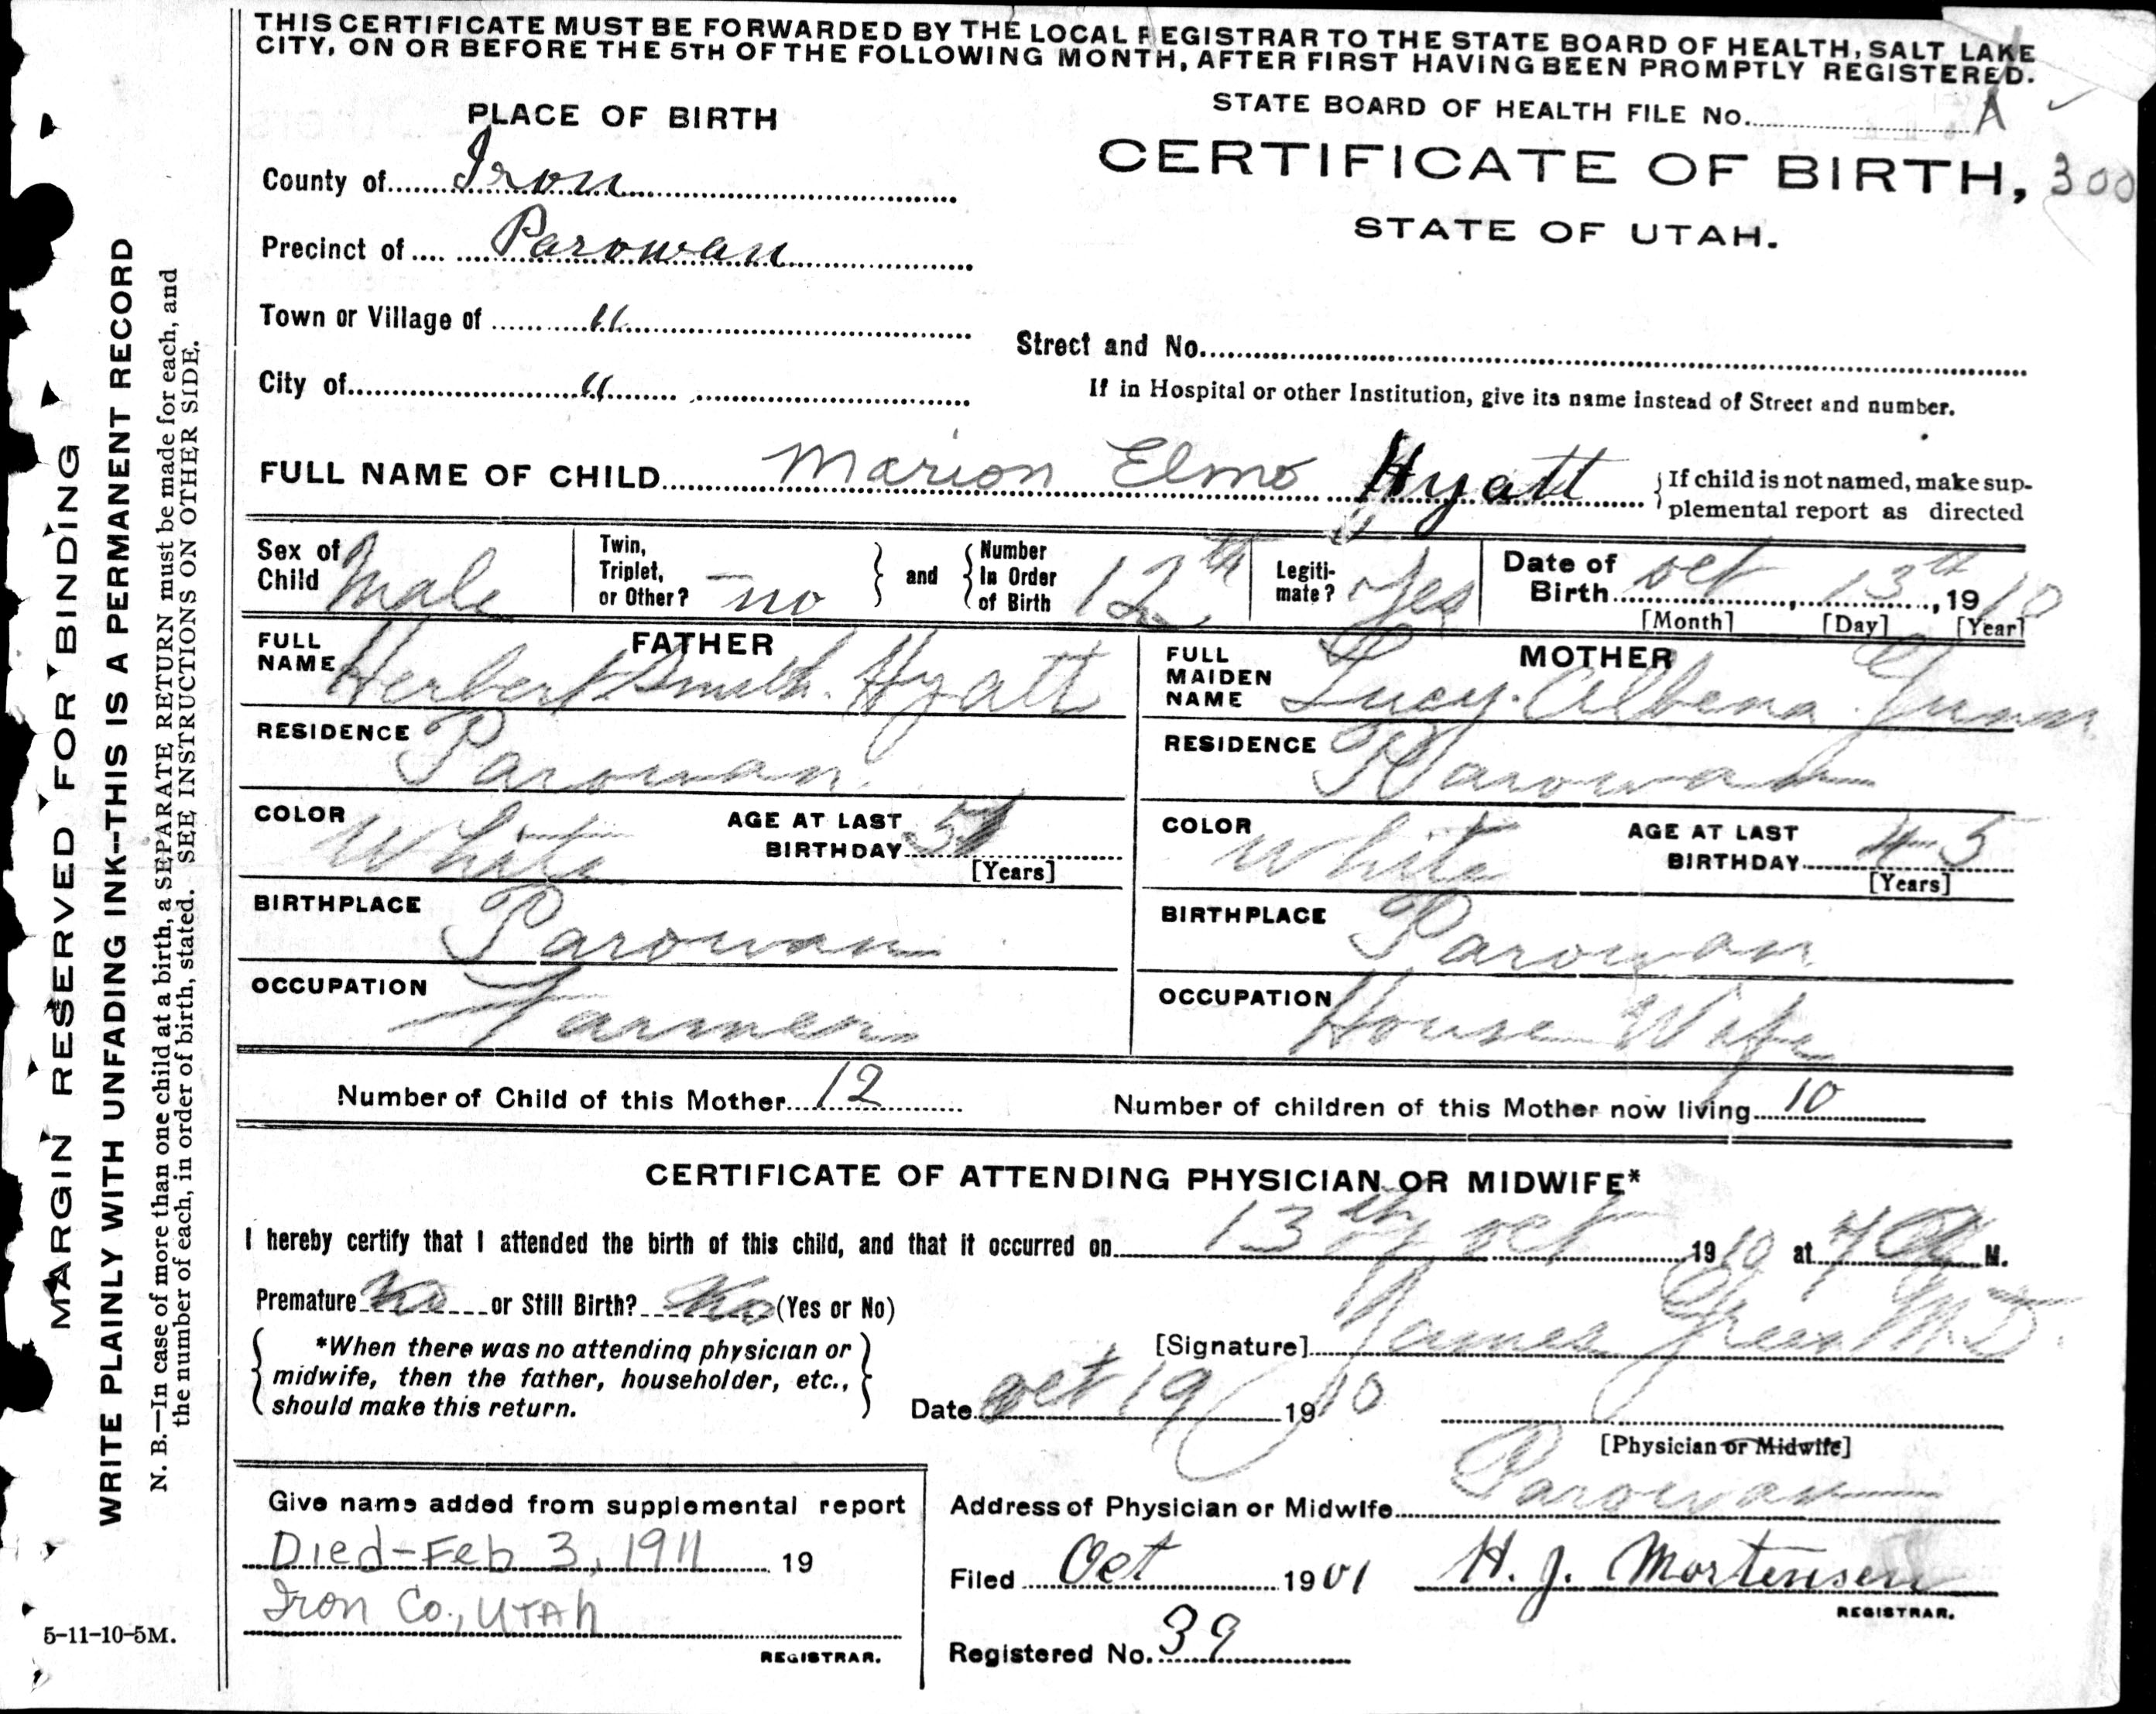 THIS CERTIFICATE MUST BE FORWARDED BY THE LOCAL REGISTRAR TO THE STATE BOARD OF HEALTH, SALT LAKE
CITY, ON OR BEFORE THE 5TH OF THE FOLLOWING MONTH, AFTER FIRST HAVING BEEN PROMPTLY REGISTERED.
STATE BOARD OF HEALTH FILE NO. A
PLACE OF BIRTH
CERTIFICATE OF BIRTH, 300
STATE OF UTAH.
County of Iron
Precinct of Parowan
Town or Village of "
Street and No.
City of "
If in Hospital or other Institution, give its name instead of Street and number.
FULL NAME OF CHILD Marion Elmo Hyatt { If child is not named, make sup-
plemental report as directed
Sex of Child Male
Twin, Triplet, or Other? no } and { Number In Order of Birth 12th
Legiti-mate? Yes
Date of Birth Oct, 13th, 1910
[Month] [Day] [Year]
FATHER
FULL NAME Herbert Smith Hyatt
MOTHER
FULL MAIDEN NAME Lucy Albena Gunn
RESIDENCE Parowan
RESIDENCE Parowan
COLOR White AGE AT LAST BIRTHDAY
[Years]
COLOR White AGE AT LAST BIRTHDAY 45
[Years]
BIRTHPLACE Parowan
BIRTHPLACE Parowan
OCCUPATION Farmer
OCCUPATION House Wife
Number of Child of this Mother 12
Number of children of this Mother now living 10
CERTIFICATE OF ATTENDING PHYSICIAN OR MIDWIFE*
I hereby certify that I attended the birth of this child, and that it occurred on 13th Oct 1910 at M.
Premature No or Still Birth? No (Yes or No)
[Signature] James Green M.D.
{ *When there was no attending physician or
midwife, then the father, householder, etc.,
should make this return. }
Date Oct 19 1910
[Physician or Midwife]
Address of Physician or Midwife Parowan
Give name added from supplemental report
Died-Feb 3, 1911 19
Iron Co., Utah
REGISTRAR.
Filed Oct 1901 H. J. Mortensen
REGISTRAR.
Registered No. 39
MARGIN RESERVED FOR BINDING
WRITE PLAINLY WITH UNFADING INK--THIS IS A PERMANENT RECORD
N. B.—In case of more than one child at a birth, a SEPARATE RETURN must be made for each, and
the number of each, in order of birth, stated. SEE INSTRUCTIONS ON OTHER SIDE.
5-11-10-5M.